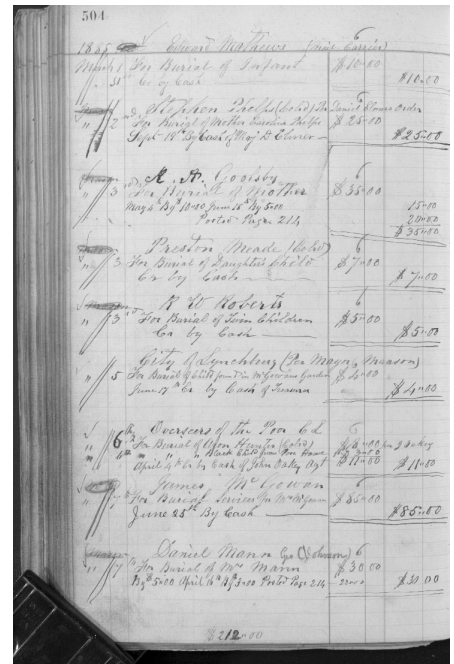 504
1885 Edward Mathews (Mail Carrier) 6
March 1 For Burial of Infant $10.00
" 31 Cr by Cash $10.00
2nd Stephen Phelps (Cold) Daniel Elmers Order
" 2 For Burial of Mother Phelps $25.00
Sept 19th By Cash of Maj D Elmer $25.00
3rd A. Goolsby 6
" 3 For Burial of Mother $35.00
May 4th By $10.00 June 15th By 5.00 15.00
Posted Page 214 20.00
$35.00
Preston Meade (Cold) 6
" 3 For Burial of Daughters Child $7.00
Cr by Cash $7.00
R W Roberts 6
" 3rd For Burial of Twin Children $5.00
Cr by Cash $5.00
City of Lynchburg (Per Mayor Manson)
" 5 For Burial of Child found in McGowans Garden $4.00
June 17th Cr by Cash of $4.00
6th Overseers of the Poor C L 6
" 6 For Burial of Hunter (Cold) $6.00 per J Oakey
" 6th " " " Black Child from Poor House
April 4th Cr by Cash of John Oakey Agt $11.00 $11.00
James McGowan 6
" 7 For Burial Services for Mr McGowan $85.00
June 25th By Cash $85.00
Daniel Mann (Johnson) 6
" 7 For Burial of Mrs Mann $30.00
By 5.00 April 16th By 3.00 Posted Page 214 $30.00
$212.00